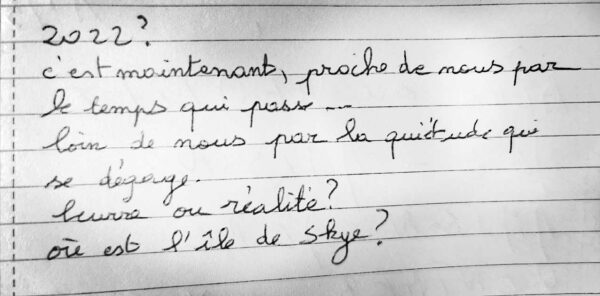 2022?
c'est maintenant, proche de nous par
le temps qui passe...
loin de nous par la quiétude qui
se dégage.
leurre ou réalité?
où est l'île de Skye?